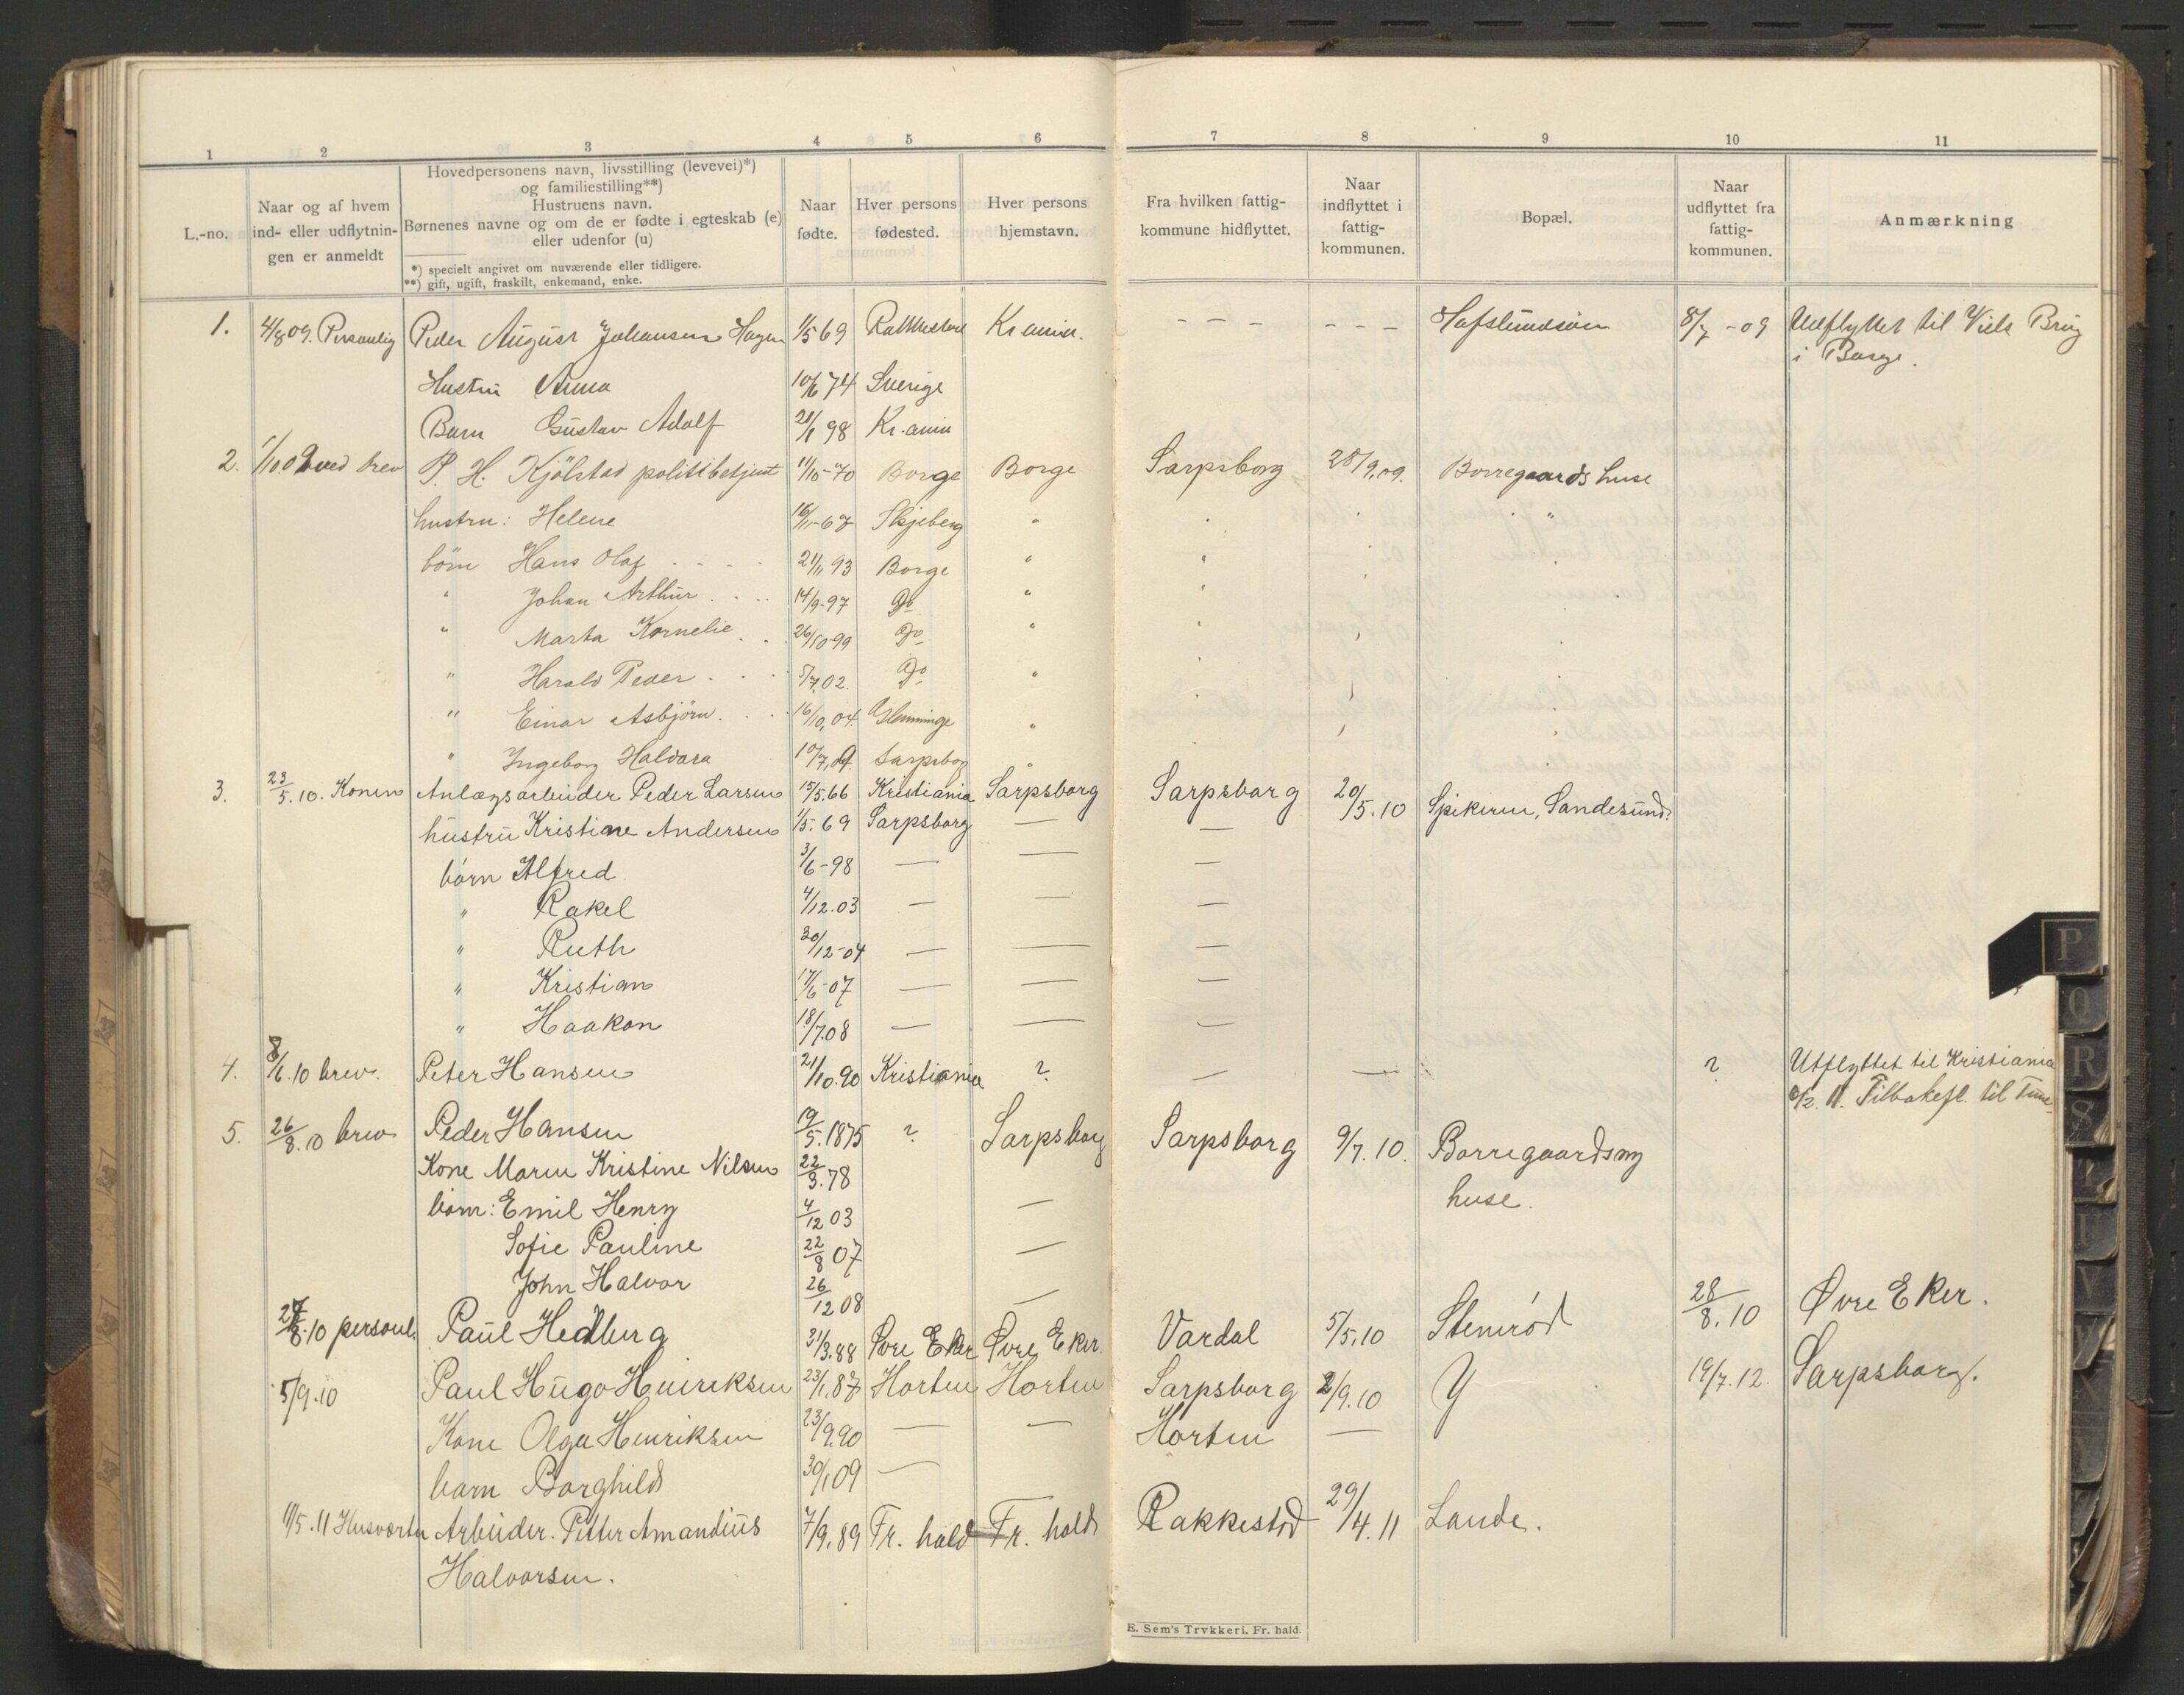 1 2 3 4 5 6 7 8 9 10 11
L.-no.
Naar og af hvem
ind- eller udflytnin-
gen er anmeldt
Hovedpersonens navn, livsstilling (levevei)*)
og familiestilling**)
Hustruens navn.
Børnenes navne og om de er fødte i egteskab (e)
eller udenfor (u)
*) specielt angivet om nuværende eller tidligere.
**) gift, ugift, fraskilt, enkemand, enke.
Naar
fødte.
Hver persons
fødested.
Hver persons
hjemstavn.
Fra hvilken fattig-
kommune hidflyttet.
Naar
indflyttet i
fattig-
kommunen.
Bopæl.
Naar
udflyttet fra
fattig-
kommunen.
Anmærkning
1. 4/8 09. Personlig Peder August Johansen Hagen 1/5 69 Kr.ania. - - - - - - Hafslundsøen 8/7 - 09 Udflyttet til Viels Brug
i Borge.
Hustru Anna 10/6 74 Sverige
Barn Gustav Adolf 21/1 98 Kr.ania
2. 1/10 09 ved brev P. H. Kjölstad politibetjent 11/10-70 Borge Borge Sarpsborg 28/9.09. Borregaards huse
hustru: Helene 16/11-67 Skjeberg " " " "
börn Hans Olaf . . . . 21/11 93 Borge " "
" Johan Arthur . . . 14/9-97 Do " "
" Marta Kornelie . . 26/10-99 Do " "
" Harald Peder . . . 5/7.02. Do " "
" Einar Asbjörn . . . 16/10.04. Glemminge " "
" Ingeborg Haldora 10/7.09. Sarpsborg "
3. 23/5.10. Konen Anlægsarbeider Peder Larsen 15/5.66 Kristiania Sarpsborg Sarpsborg 20/5.10 Spikeren, Sandesund.
hustru Kristine Andersen 1/5.69 Sarpsborg — —
börn Alfred 3/6-98 — — —
" Rakel 4/12.03 — — —
" Ruth 30/12-04 — — —
" Kristian 17/6-07 — — —
" Haakon 18/7.08 — — —
4. 8/6.10 brev. Peter Hansen 21/10.90 Kristiania ? — — ? Utflyttet til Kristiania
Tilbakefl. til Tune.
5. 26/8.10 brev Peder Hansen 19/5.1875 ? Sarpsborg Sarpsborg 9/7.10. Borregaards ny
huse.
Kone Maren Kristine Nilsen 22/3.78
börn: Emil Henry 4/12 03 —
Sofie Pauline 22/8 07 —
John Halvor 26/12 08 —
27/8.10 personl. Paul Hedberg 31/3.88 Øvre Eker Øvre Eker Vardal 5/5.10 Stenrød 28/8.10 Øvre Eker.
5/9.10 Paul Hugo Henriksen 23/1.87 Horten Horten Sarpsborg 2/9.10 Y 19/7.12. Sarpsborg.
Kone Olga Henriksen 23/9.90 — — Horten —
barn Borghild 30/1 09 —
11/5.11 Husværten Arbeider. Petter Amandius 7/9.89 Fr. hald Fr. hald Rakkestad 29/4.11 Lande.
Halvorsen.
E. Sem's Trykkeri, Fr. hald.
P
Q
R
S
T
V
X